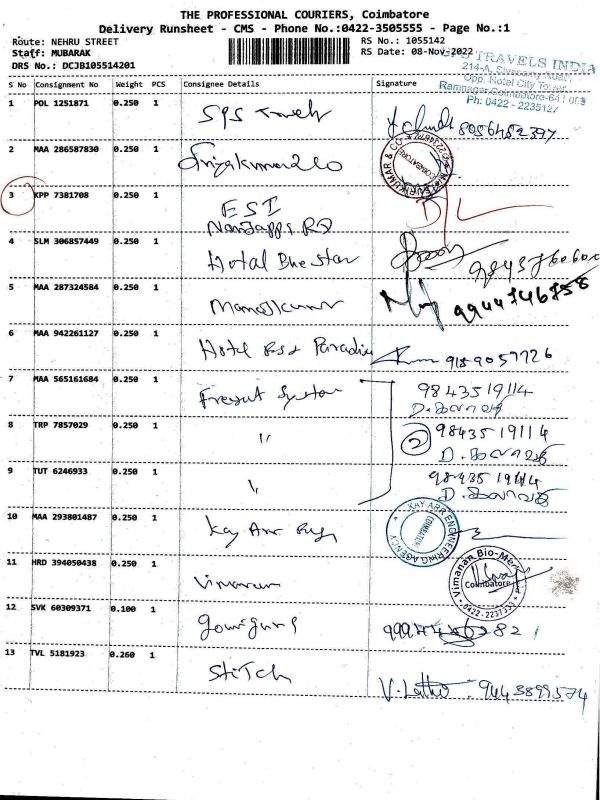 THE PROFESSIONAL COURIERS, Coimbatore
Delivery Runsheet - CMS - Phone No.:0422-3505555 - Page No.:1
Route: NEHRU STREET
Staff: MUBARAK
DRS No.: DCJB105514201
RS No.: 1055142
RS Date: 08-Nov-2022
TRAVELS INDIA
214-A,
Opp. Hotel City Tower
Ph: 0422 - 2235127
S No Consignment No Weight PCS Consignee Details Signature
1 POL 1251871 0.250 1 8056482397
2 MAA 286587830 0.250 1
3 KPP 7381708 0.250 1 ESI D/L
Nanjappa Rd
4 SLM 306857449 0.250 1 Hotal Blue Star
5 MAA 287324584 0.250 1 Manojkumar 9944746758
6 MAA 942261127 0.250 1 Hotel Paradise 9189057726
7 MAA 565161684 0.250 1 System 9843519114
8 TRP 7857029 0.250 1 " 2 9843519114
9 TUT 6246933 0.250 1 " 9843519114
10 MAA 293801487 0.250 1 Kay Arr Eng
KAY ARR ENGINEERING AGENCY
COIMBATORE
11 HRD 394050438 0.250 1
Vimanan Bio-Med
Coimbatore
0422-2237333
12 SVK 60309371 0.100 1
13 TVL 5181923 0.260 1 Stitch 9443899574